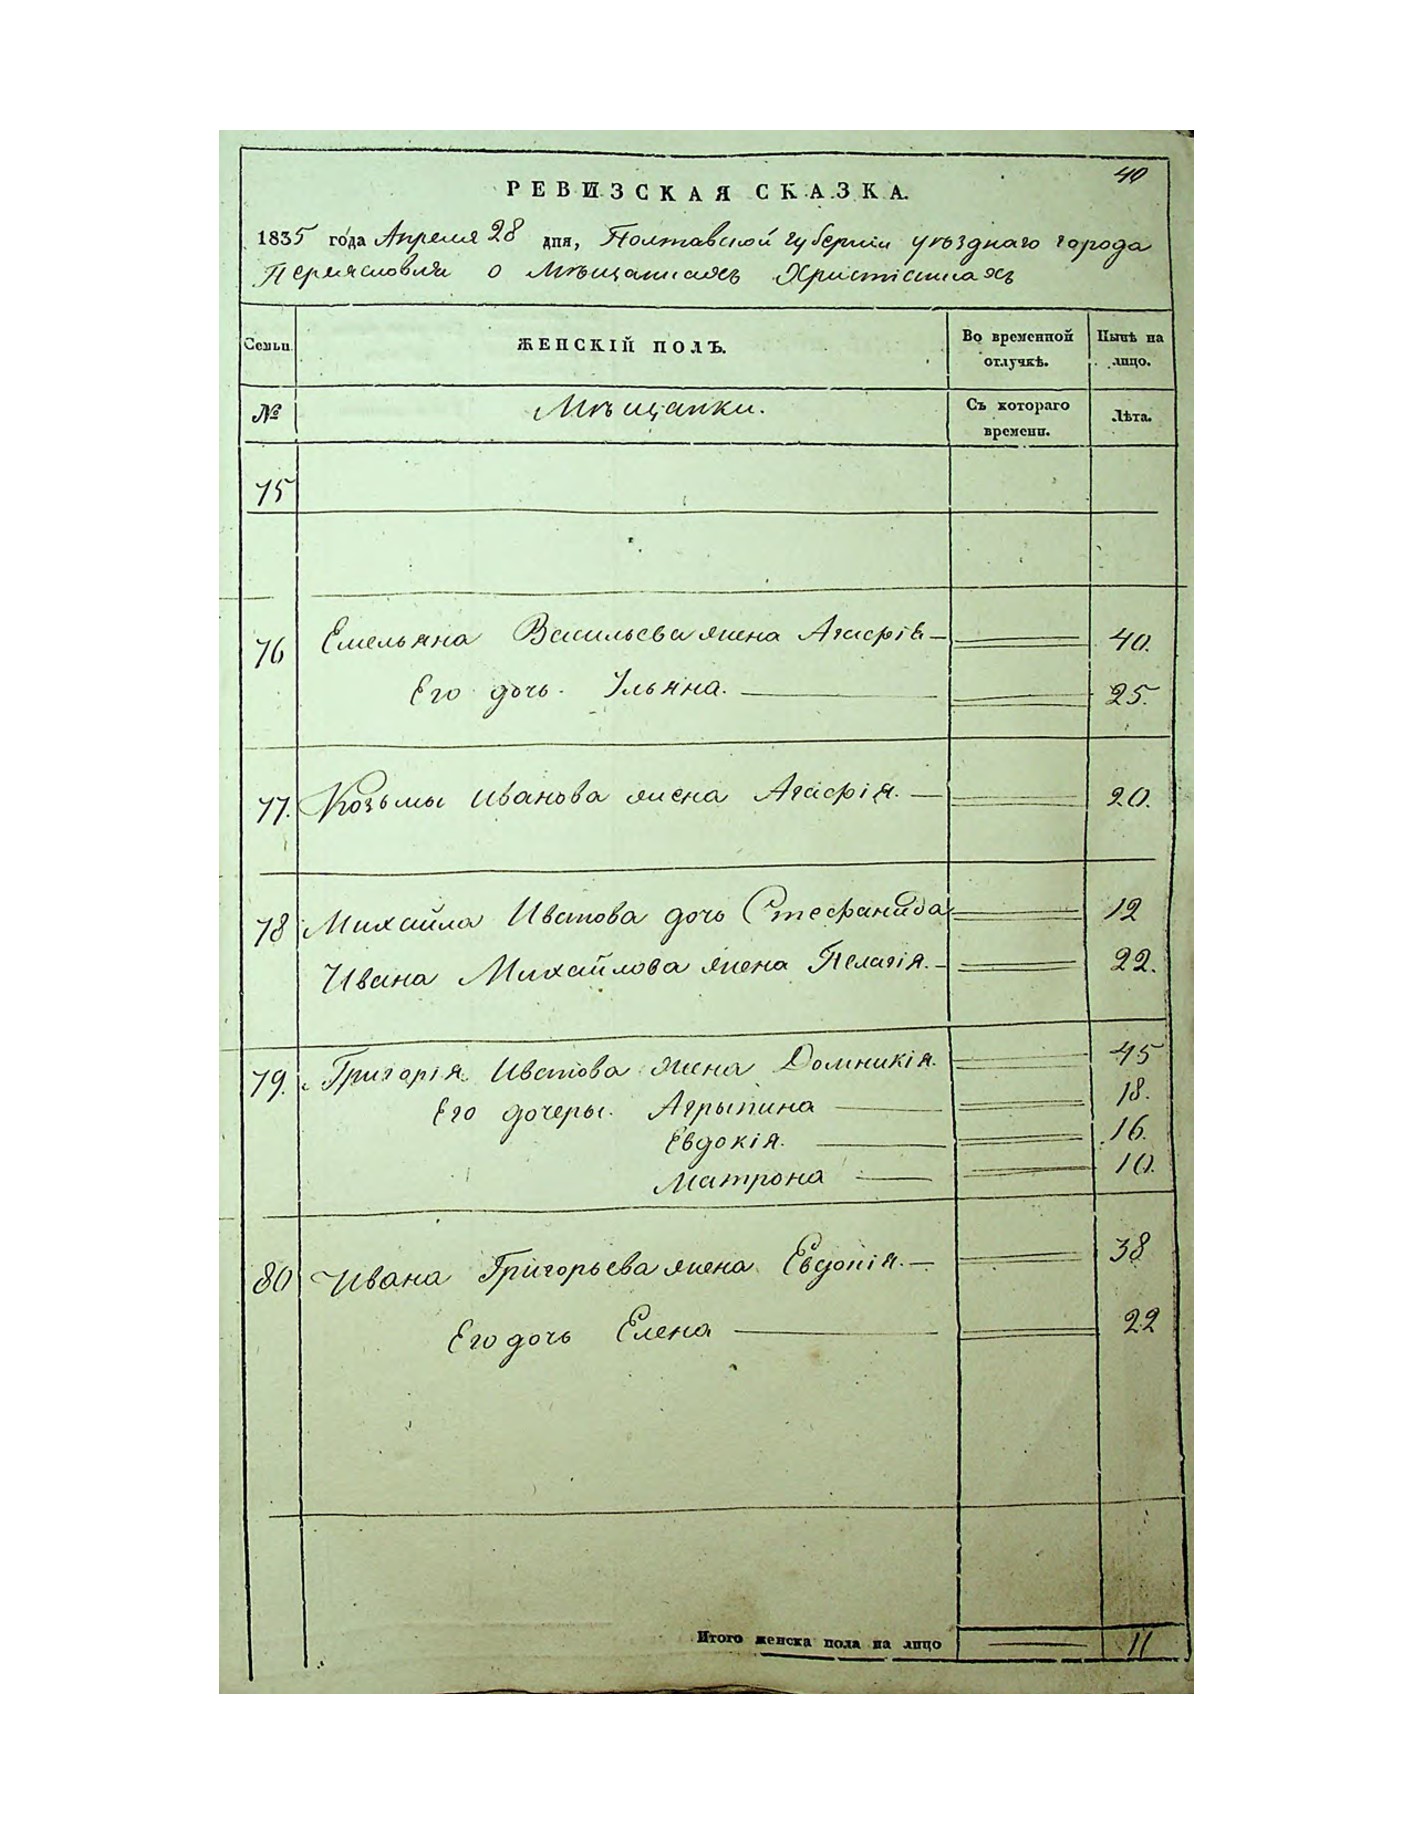 40
РЕВИЗСКАЯ СКАЗКА.
1835 года Апреля 28 дня, Полтавской губернии уѣзднаго города
Переясловля о Мѣщанахъ Христіянахъ
Семьи. ЖЕНСКІЙ ПОЛЪ. Во временной отлучкѣ. Нынѣ на лицо.
№ Мѣщанки. Съ котораго времени. Лѣта.
75
76 Емельяна Васильева жена Агафія 40.
Его дочь. Ульяна. 25.
77. Козьмы Иванова жена Агафія. 20.
78 Михайла Иванова дочь Стефанида 12
Ивана Михайлова жена Пелагія. 22.
79. Григорія Иванова жена Домникія. 45
Его дочеры. Агрыпина 18.
Евдокія. 16.
Матрона 10.
80 Ивана Григорьева жена Евдокія. 38
Его дочь Елена 22
Итого женска пола на лицо 11